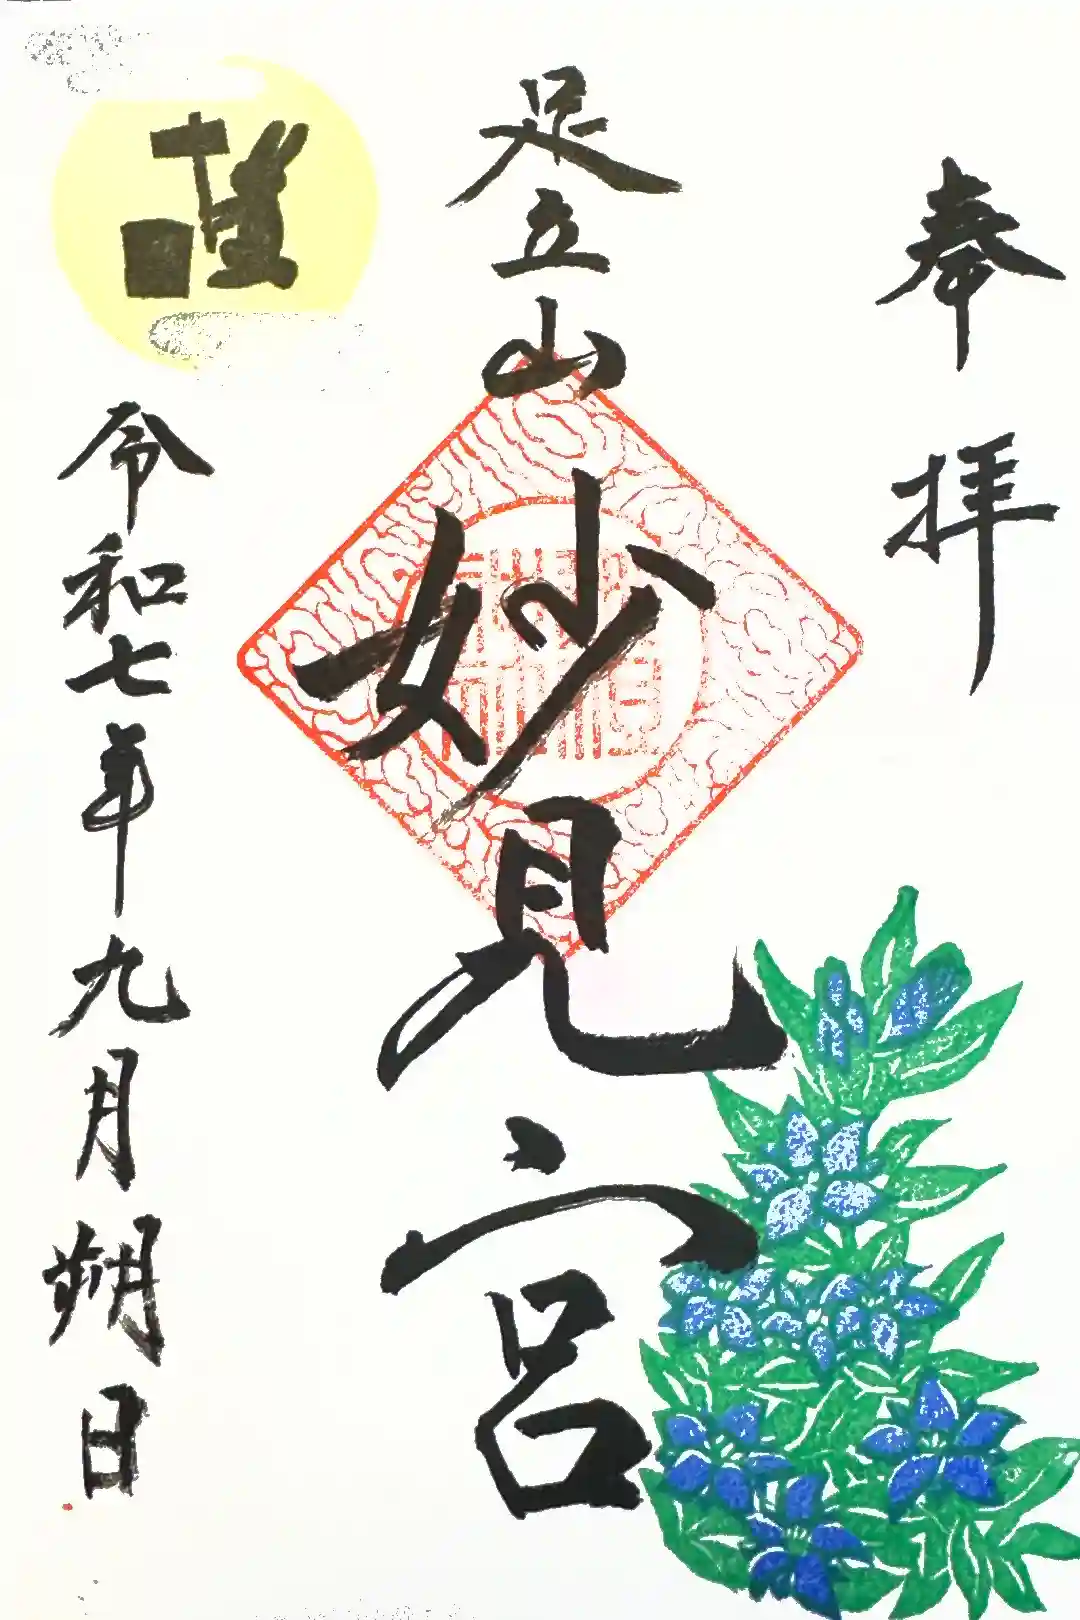 奉拝
足立山
妙見宮
令和七年九月朔日